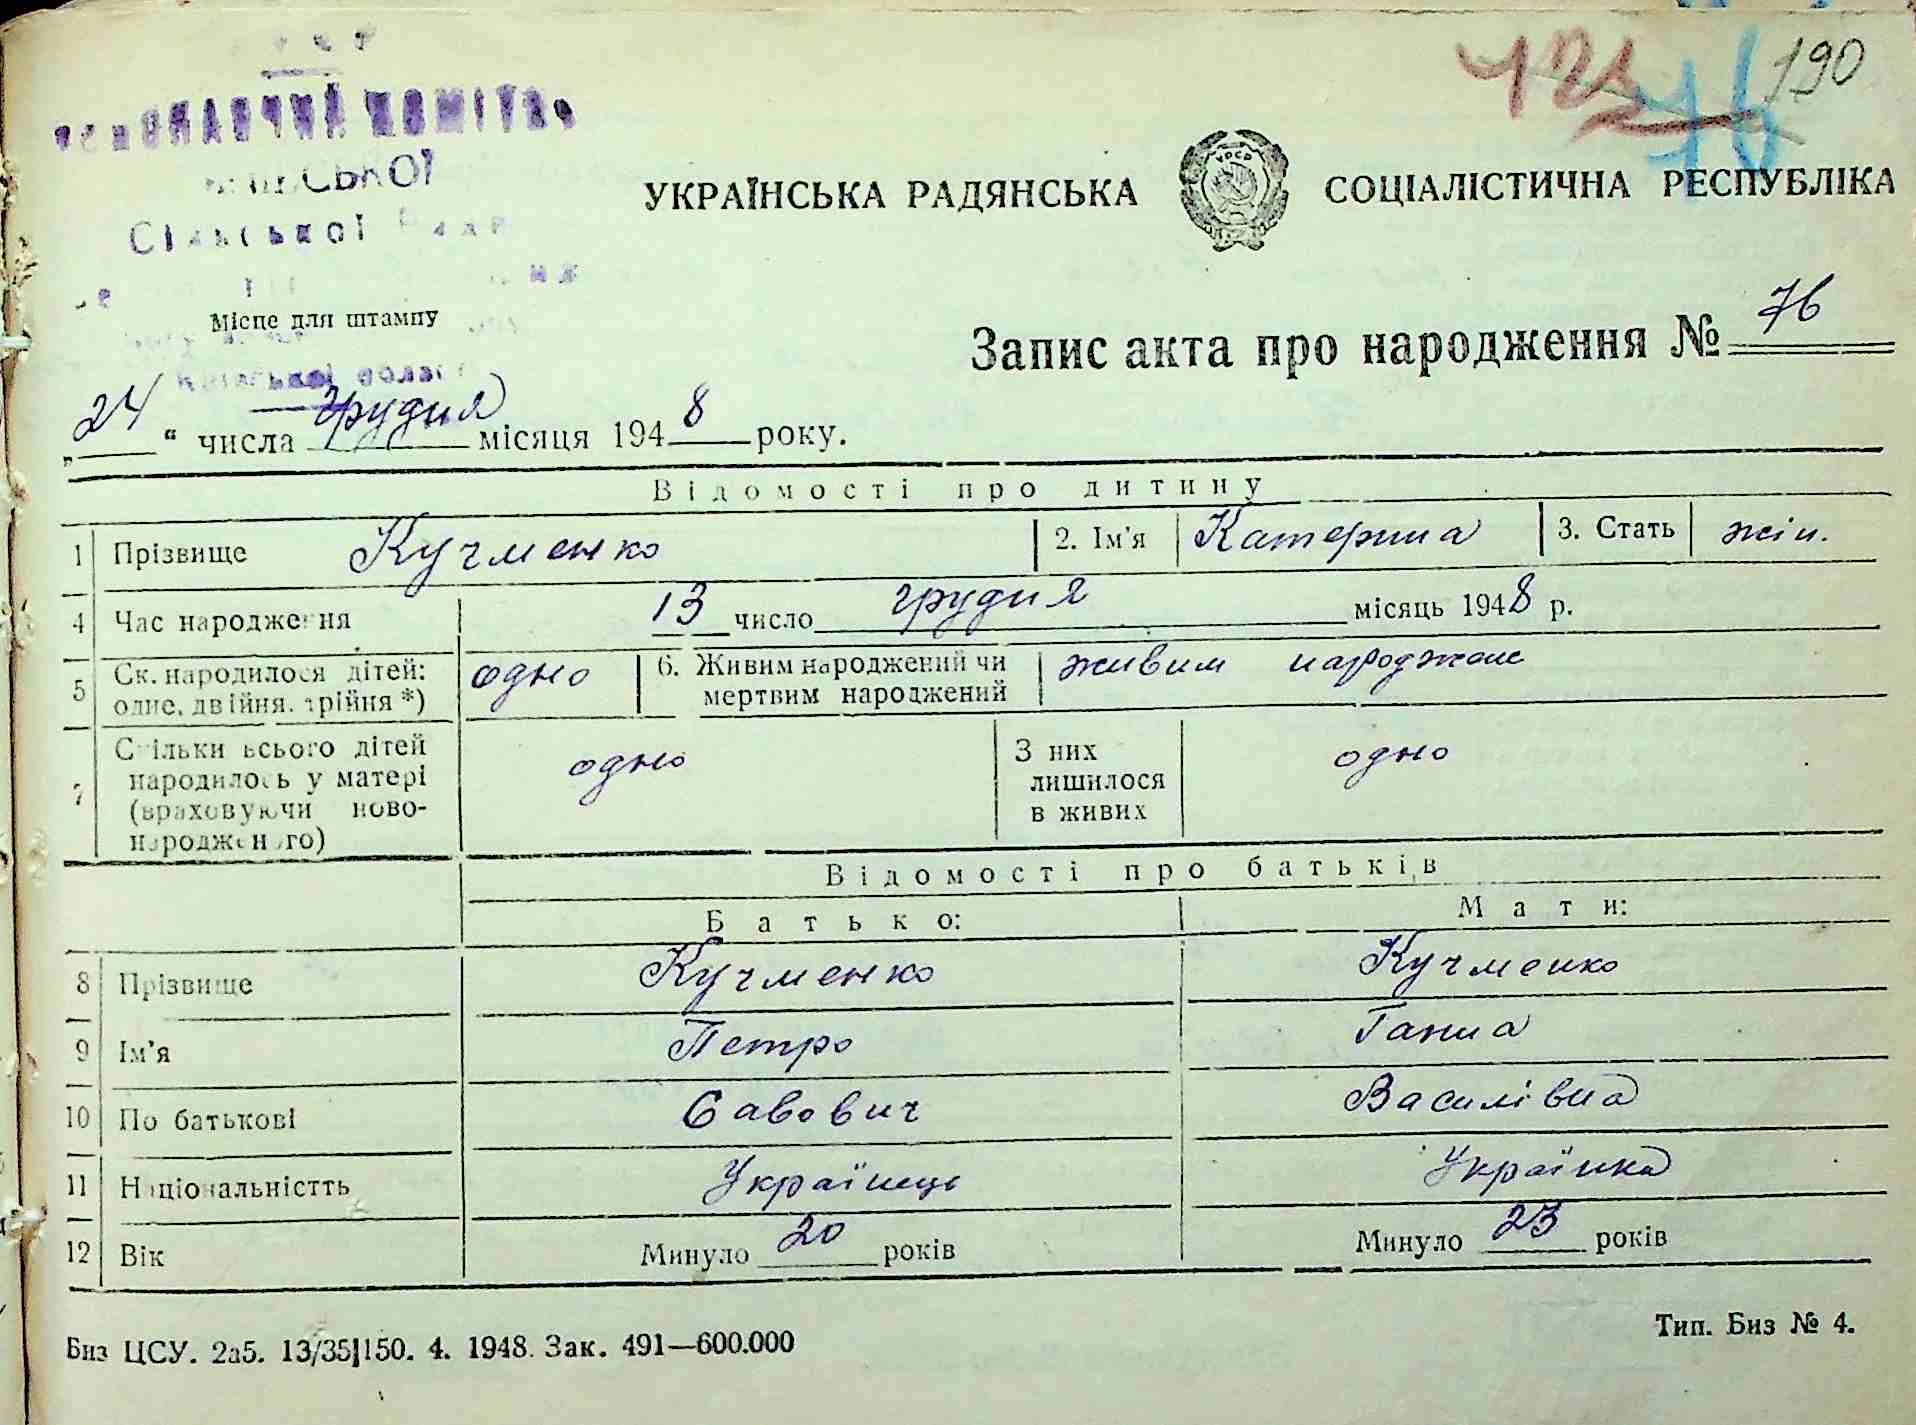 190
76
ВИКОНАВЧИЙ КОМІТЕТ
Сільської Ради
УКРАЇНСЬКА РАДЯНСЬКА СОЦІАЛІСТИЧНА РЕСПУБЛІКА
Місце для штампу
Київської област
Запис акта про народження № 76
„24“ числа грудня місяця 1948 року.
Відомості про дитину
1 Прізвище Кучменко 2. Ім'я Катерина 3. Стать жін.
4 Час народження 13 число грудня місяць 1948 р.
5 Ск. народилося дітей: одне, двійня, трійня *) одно 6. Живим народжений чи мертвим народжений живим народжене
7 Скільки всього дітей народилось у матері (враховуючи ново-народженого) одно З них лишилося в живих одно
Відомості про батьків
Батько: Мати:
8 Прізвище Кучменко Кучменко
9 Ім'я Петро Ганна
10 По батькові Савович Василівна
11 Національністть Українець Українка
12 Вік Минуло 20 років Минуло 23 років
Биз ЦСУ. 2а5. 13/35|150. 4. 1948. Зак. 491—600.000 Тип. Биз № 4.